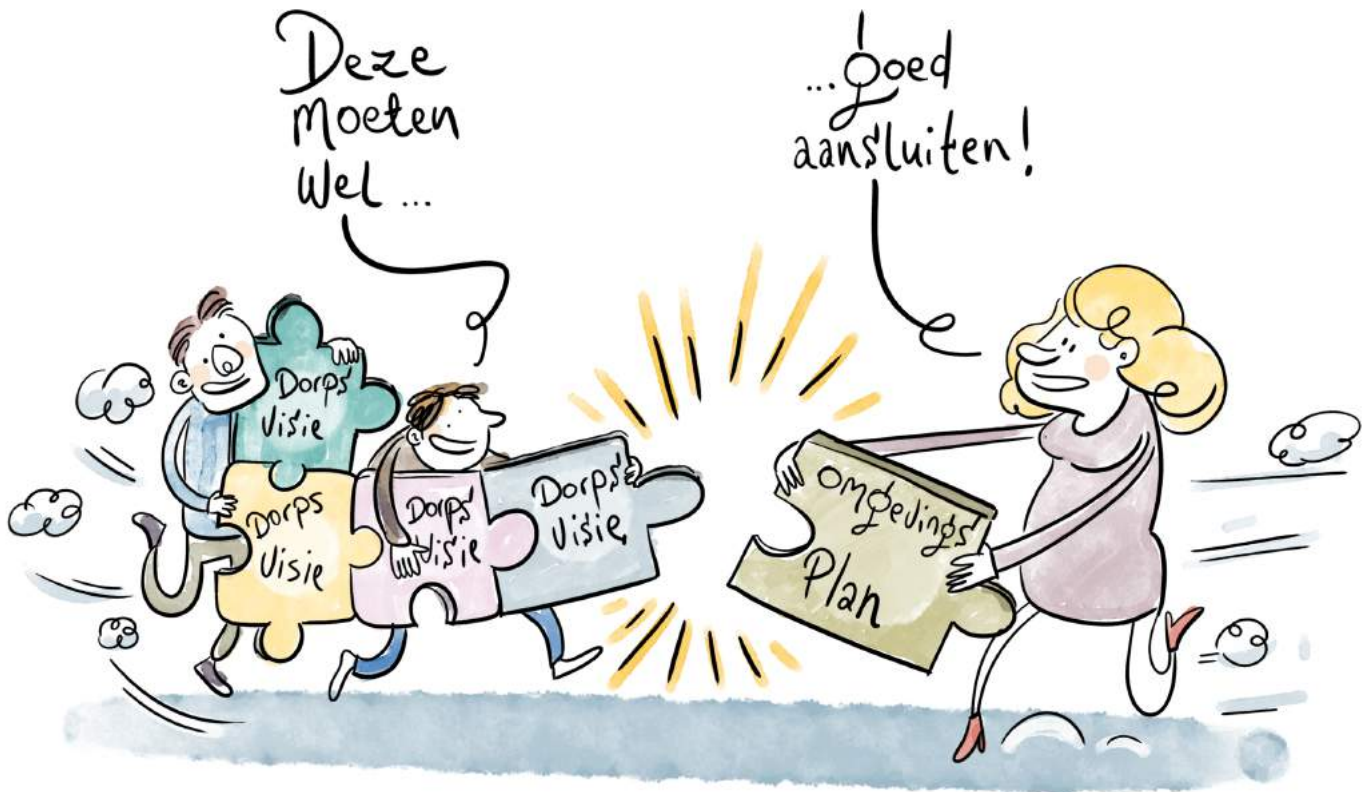 Deze
moeten
wel ...
... goed
aansluiten!
Dorps
Visie
Dorps
Visie
Dorps
Visie
Dorps
Visie
omgevings
Plan